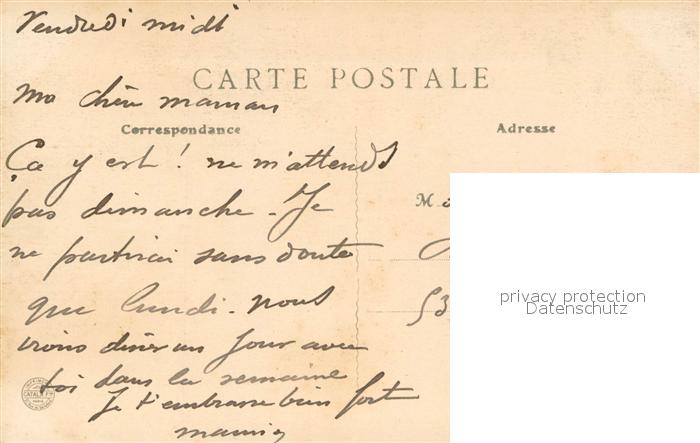 Vendredi midi
CARTE POSTALE
Ma chère maman
Correspondance
Adresse
Ça y est ! ne m'attends
pas dimanche - Je
M
ne partirai sans doute
privacy protection
Datenschutz
que lundi - nous
53
irons dîner un jour avec
toi dans la semaine
Je t'embrasse bien fort